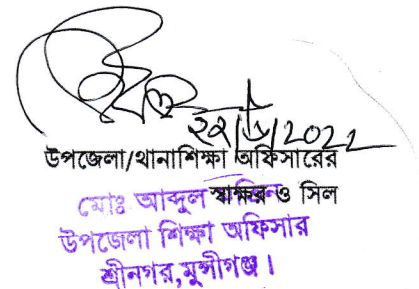 ২২/৬/2022
উপজেলা/থানাশিক্ষা অফিসারের
স্বাক্ষর ও সিল
মোঃ আব্দুল
উপজেলা শিক্ষা অফিসার
শ্রীনগর,মুন্সীগঞ্জ।